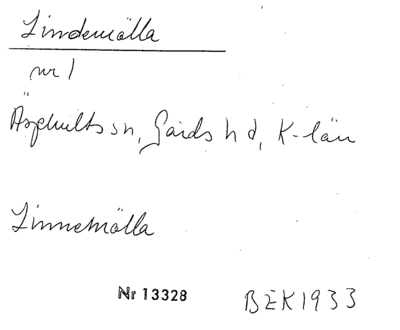 Lindemölla
nr 1
Äsphults sn, Gärds hd, K-län
Linnemölla
Nr 13328
BEK1933